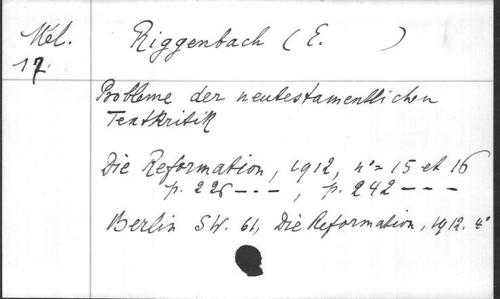 Mel. Riggenbach (E. )
17.
Probleme der neutestamentlichen
Textkritik
Die Reformation, 1912, n° = 15 et 16
p. 226 - - - , p. 242 - - -
Berlin SW. 61, Die Reformation, 1912. 4°